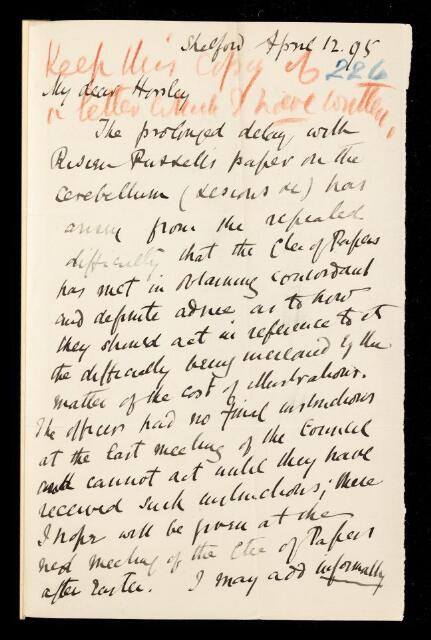 Shelford April 12. 95
Keep this Copy of 226
My dear Horsley
a letter which I have written.
The prolonged delay with
Risien Russell's paper on the
Cerebellum (Lesions &c) has
arisen from the repeated
difficulty that the Ctee of Papers
has met in obtaining concordant
and definite advice as to how
they should act in reference to it
the difficulty being increased by the
matter of the cost of illustrations.
The officers had no final instructions
at the last meeting of the Council
and cannot act until they have
received such instructions; these
I hope will be given at the
next meeting of the Ctee of Papers
after Easter. I may add informally